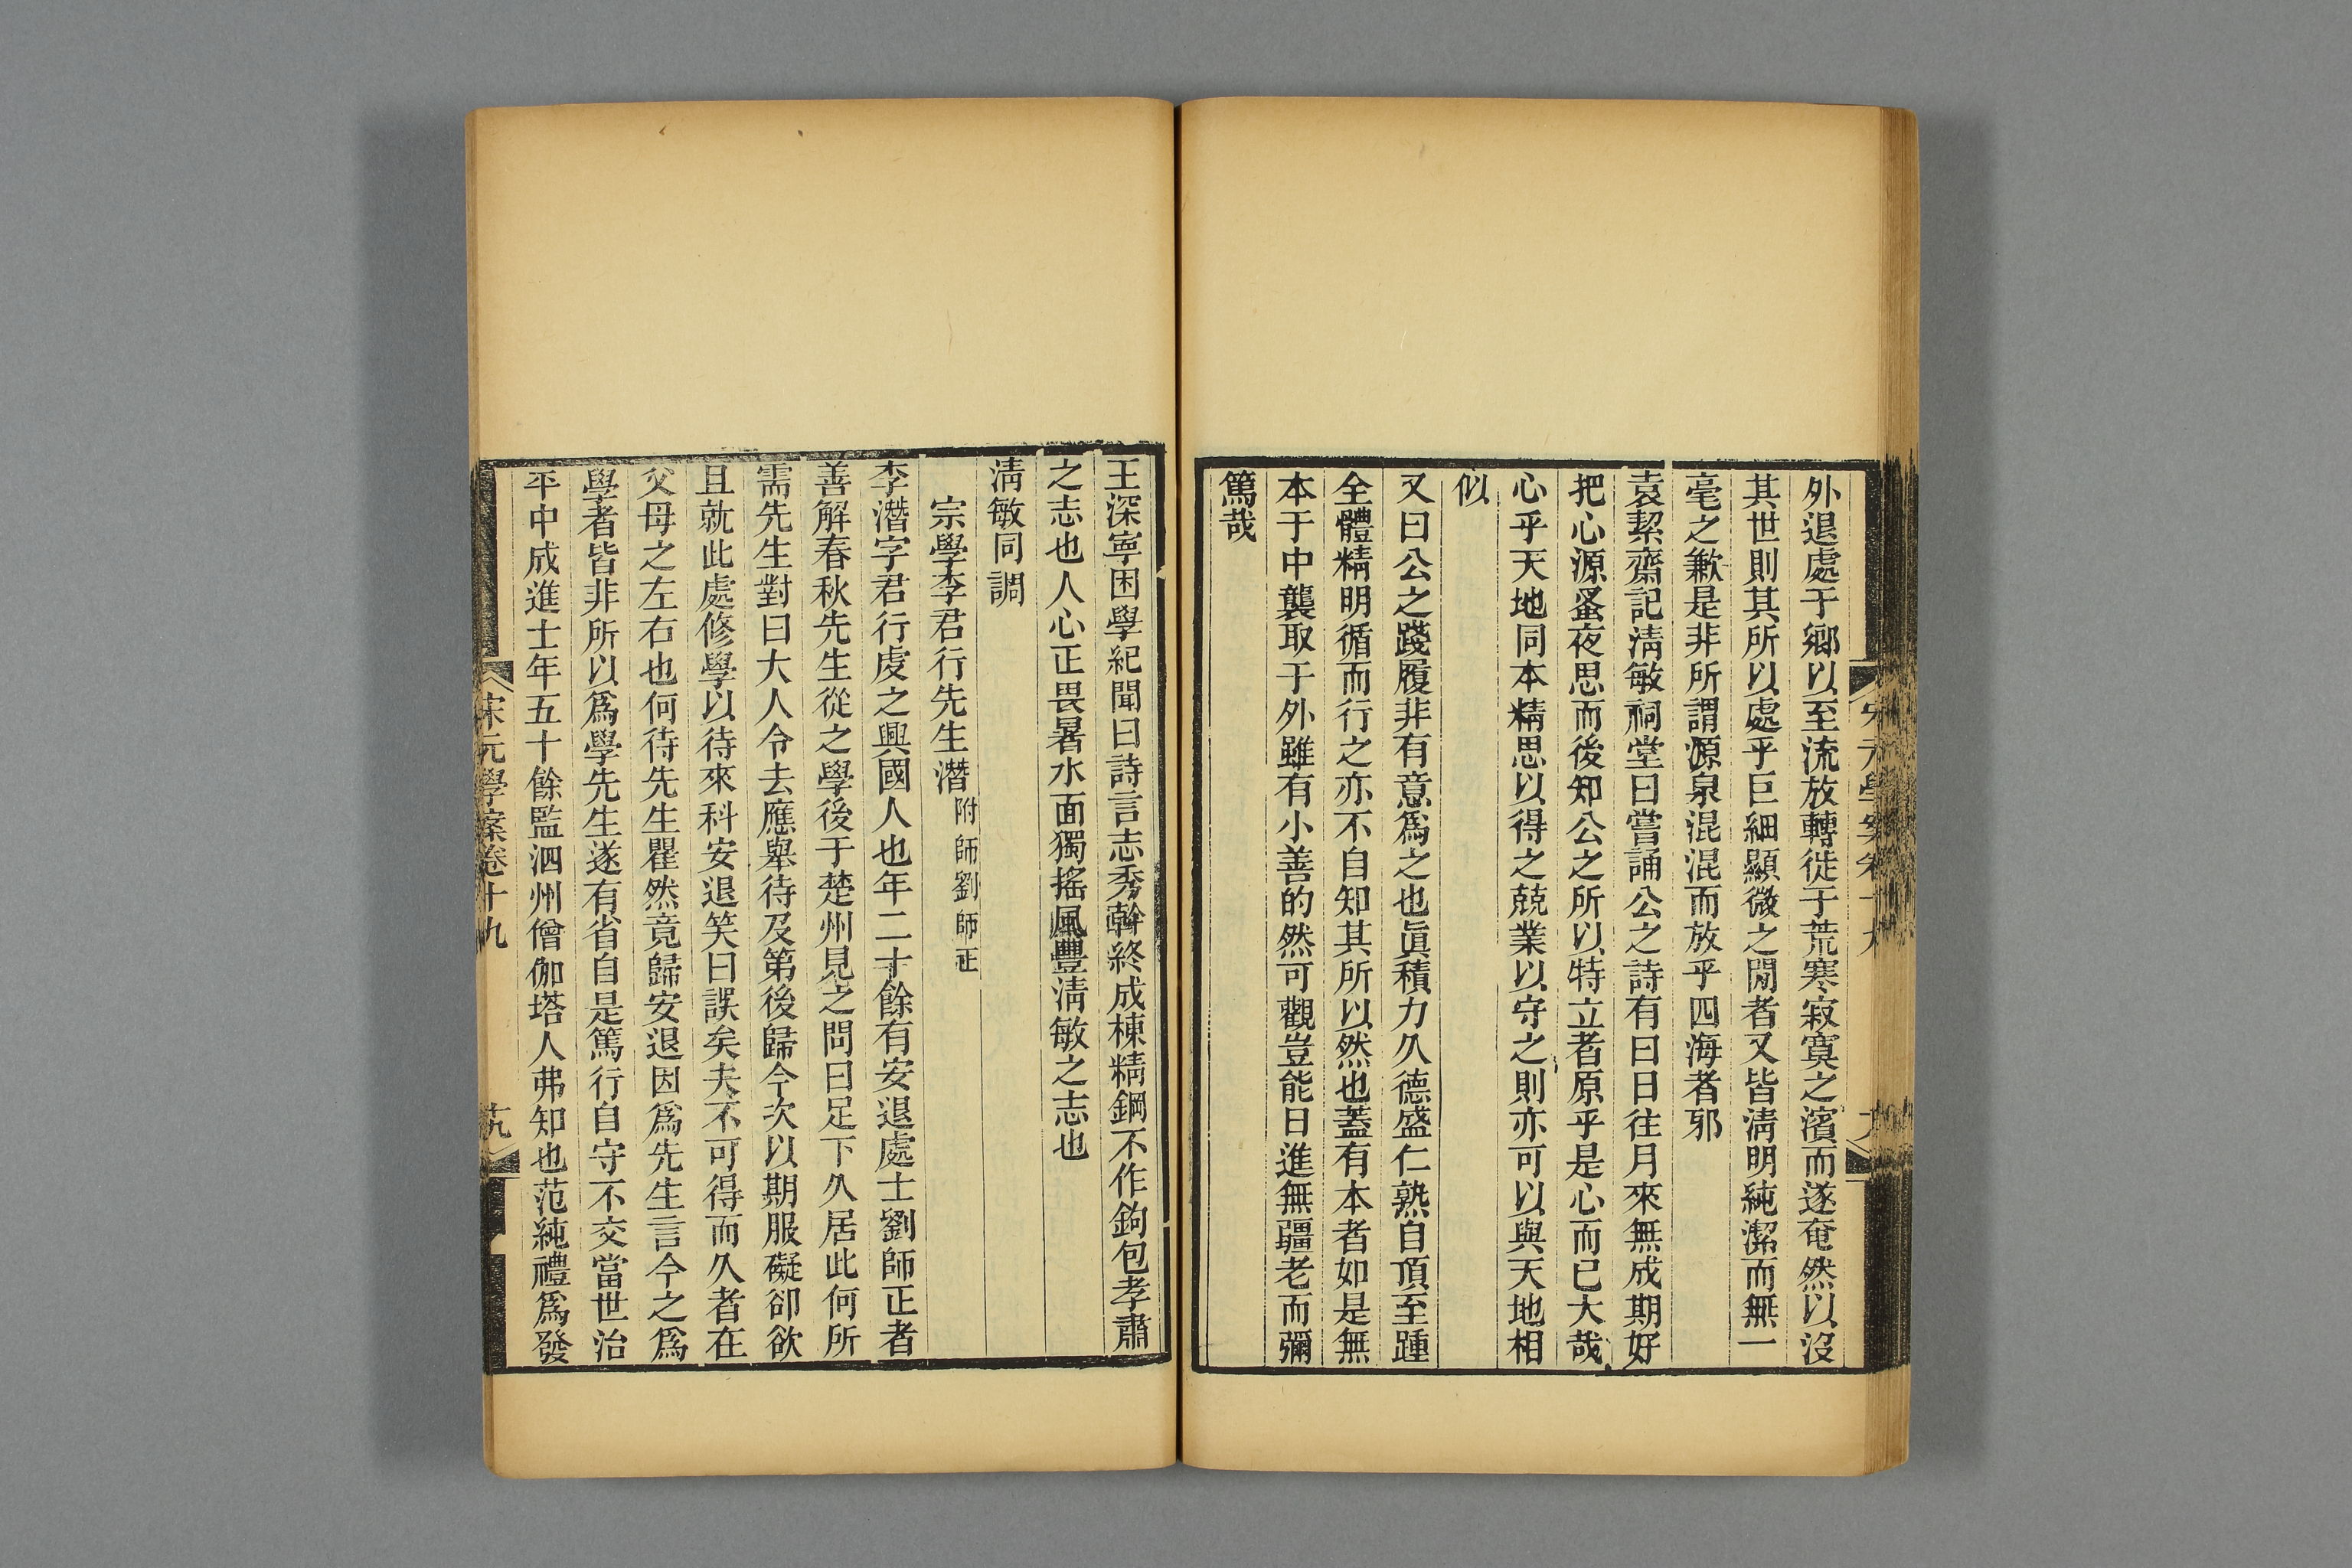 外退處于鄉以至流放轉徙于荒寒寂寞之濱而遂奄然以沒
其世則其所以處乎巨細顯微之閒者又皆淸明純潔而無一
毫之歉是非所謂源泉混混而放乎四海者邪
袁絜齋記淸敏祠堂曰嘗誦公之詩有曰日往月來無成期好
把心源蚤夜思而後知公之所以特立者原乎是心而已大哉
心乎天地同本精思以得之兢業以守之則亦可以與天地相
似
又曰公之踐履非有意爲之也眞積力久德盛仁熟自頂至踵
全體精明循而行之亦不自知其所以然也蓋有本者如是無
本于中襲取于外雖有小善的然可觀豈能日進無疆老而彌
篤哉
王深寧困學紀聞曰詩言志秀幹終成棟精鋼不作鉤包孝肅
之志也人心正畏暑水面獨搖風豐淸敏之志也
淸敏同調
宗學李君行先生潛附師劉師正
李潛字君行虔之興國人也年二十餘有安退處士劉師正者
善解春秋先生從之學後于楚州見之問曰足下久居此何所
需先生對曰大人令去應舉待及第後歸今次以期服礙卻欲
且就此處修學以待來科安退笑曰誤矣夫不可得而久者在
父母之左右也何待先生瞿然竟歸安退因爲先生言今之爲
學者皆非所以爲學先生遂有省自是篤行自守不交當世治
平中成進士年五十餘監泗州僧伽塔人弗知也范純禮爲發
宋元學案卷十九